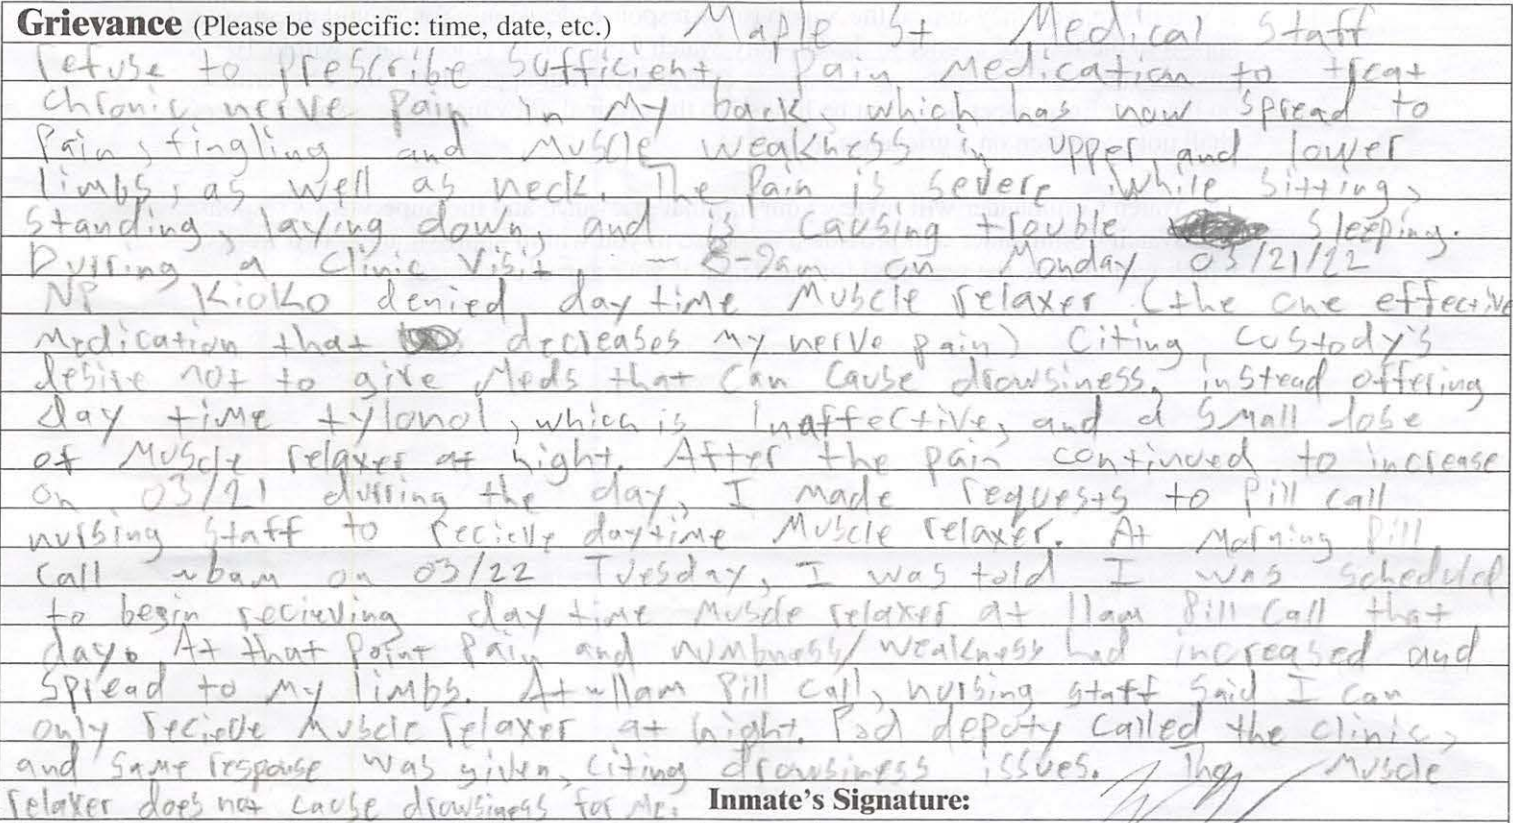 Grievance (Please be specific: time, date, etc.) Maple St Medical Staff
refuse to prescribe sufficient pain medication to treat
chronic nerve pain in my back, which has now spread to
pain, tingling and muscle weakness in upper and lower
limbs, as well as neck. The pain is severe while sitting,
standing, laying down, and is causing trouble sleeping.
Durring a clinic visit, ~ 8-9am on Monday 03/21/22
NP Kioko denied day time muscle relaxer (the one effective
medication that decreases my nerve pain) citing custody's
desire not to give meds that can cause drowsiness, instead offering
day time tylonol, which is inaffective, and a small dose
of muscle relaxer at night. After the pain continued to increase
on 03/21 durring the day, I made requests to pill call
nursing staff to recieve daytime muscle relaxer. At morning pill
call ~6am on 03/22 Tuesday, I was told I was scheduled
to begin recieving day time muscle relaxer at 11am pill call that
day. At that point pain and numbness/weakness had increased and
spread to my limbs. At ~11am pill call, nursing staff said I can
only recieve muscle relaxer at night. Pod deputy called the clinic,
and same response was given, citing drowsiness issues. The muscle
relaxer does not cause drowsiness for me. Inmate's Signature: